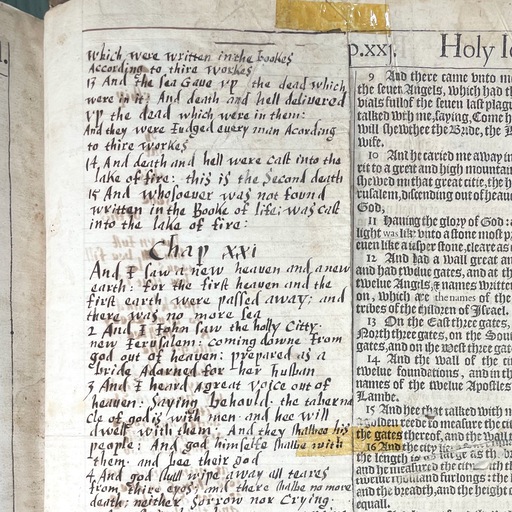 which were written in the bookes
According to thire workes
13 And the sea Gave vp the dead which
were in it: And death and hell delivered
vp the dead which were in them:
And they were Iudged every man Acording
to thire workes
14, And death and hell were cast into the
lake of fire: this is the Second death
15 And whosoever was not found
written in the Booke of life: was cast
into the lake of fire:
Chap xxi
And, I saw a new heaven and, a new
earth: for the first heaven and the
first earth were passed away: and
there was no more sea
2 And I Iohn saw the holly Citty:
new Ierusalem: coming downe from
god out of heaven: prepared as a
bride Adarned for her husban
3 And I heard a great voice out of
heaven: Saying behould: the taberna
cle of god is with men: and hee will
dwell with them: And they shalbee his
people: And god himselfe shalbe with
them: and bee their god
4 And god shall wipe away all teares
from thire eyes: and there shalbe no more
death: neither Sorrow nor Crying:
p.xxj. Holy
9 And there came vnto m
the seuen Angels, which had th
vials full of the seuen last plagu
talked with me, saying, Come h
will shew thee the Bride, the
wife.
10 And he caried me away in
rit to a great and high mountain
shewed me that great citie, the h
rusalem, discending out of heauen
God,
11 Hauing the glory of God: a
light was like vnto a stone most p
euen like a iasper stone, cleare as
12 And had a wall great an
and had twelue gates, and at th
twelue Angels, & names written
on, which are the names of the
tribes of the children of Israel.
13 On the East three gates,
North three gates, on the Sou
gates, and on the west three gate
14 And the wall of the ci
twelue foundations, and in th
names of the twelue Apostles
Lambe.
15 And hee that talked with m
golden reede to measure the
the gates thereof, and the wall
16 And the city
the length is as large as the
and he measured the city with th
twelue thousand furlongs: the l
and the breadth, and the height
equall.